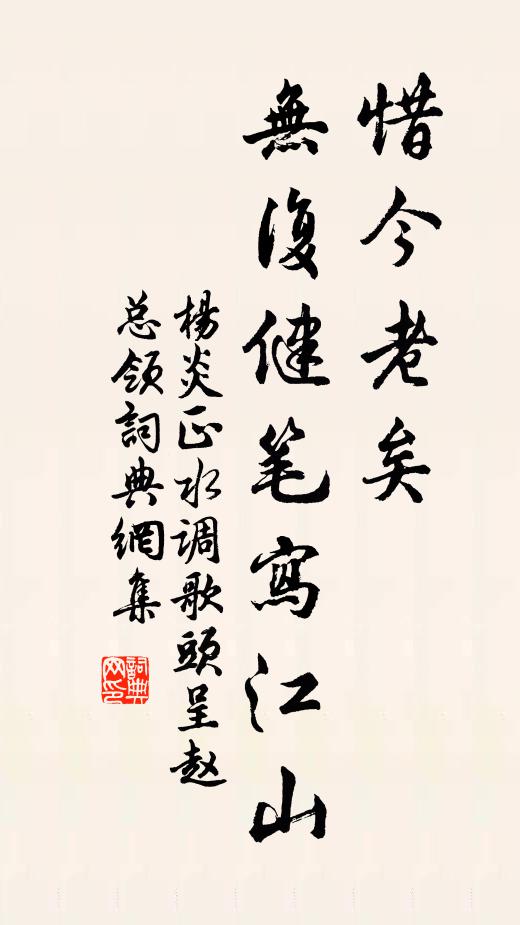 惜今老矣
無復健笔寫江山
楊炎正水调歌頭呈赵
总領詞典網集
詞典网印